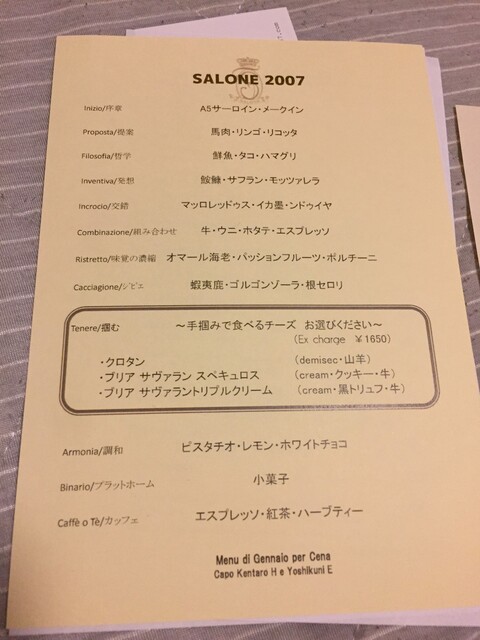 SALONE 2007
Inizio/序章 A5サーロイン・メークイン
Proposta/提案 馬肉・リンゴ・リコッタ
Filosofia/哲学 鮮魚・タコ・ハマグリ
Inventiva/発想 鮟鱇・サフラン・モッツァレラ
Incrocio/交錯 マッロレッドゥス・イカ墨・ンドゥイヤ
Combinazione/組み合わせ 牛・ウニ・ホタテ・エスプレッソ
Ristretto/味覚の濃縮 オマール海老・パッションフルーツ・ポルチーニ
Cacciagione/ジビエ 蝦夷鹿・ゴルゴンゾーラ・根セロリ
Tenere/掴む ～手掴みで食べるチーズ お選びください～
(Ex charge ¥1650)
・クロタン (demisec・山羊)
・ブリア サヴァラン スペキュロス (cream・クッキー・牛)
・ブリア サヴァラントリプルクリーム (cream・黒トリュフ・牛)
Armonia/調和 ピスタチオ・レモン・ホワイトチョコ
Binario/プラットホーム 小菓子
Caffè o Tè/カッフェ エスプレッソ・紅茶・ハーブティー
Menu di Gennaio per Cena
Capo Kentaro H e Yoshikuni E